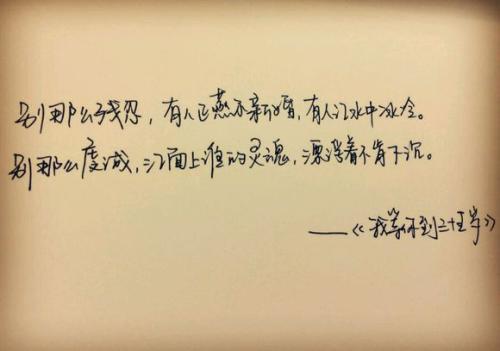 别那么残忍，有人正燕尔新婚，有人江水中冰冷。
别那么虔诚，江面上谁的灵魂，漂浮着不肯下沉。
——《我等不到三十五岁》